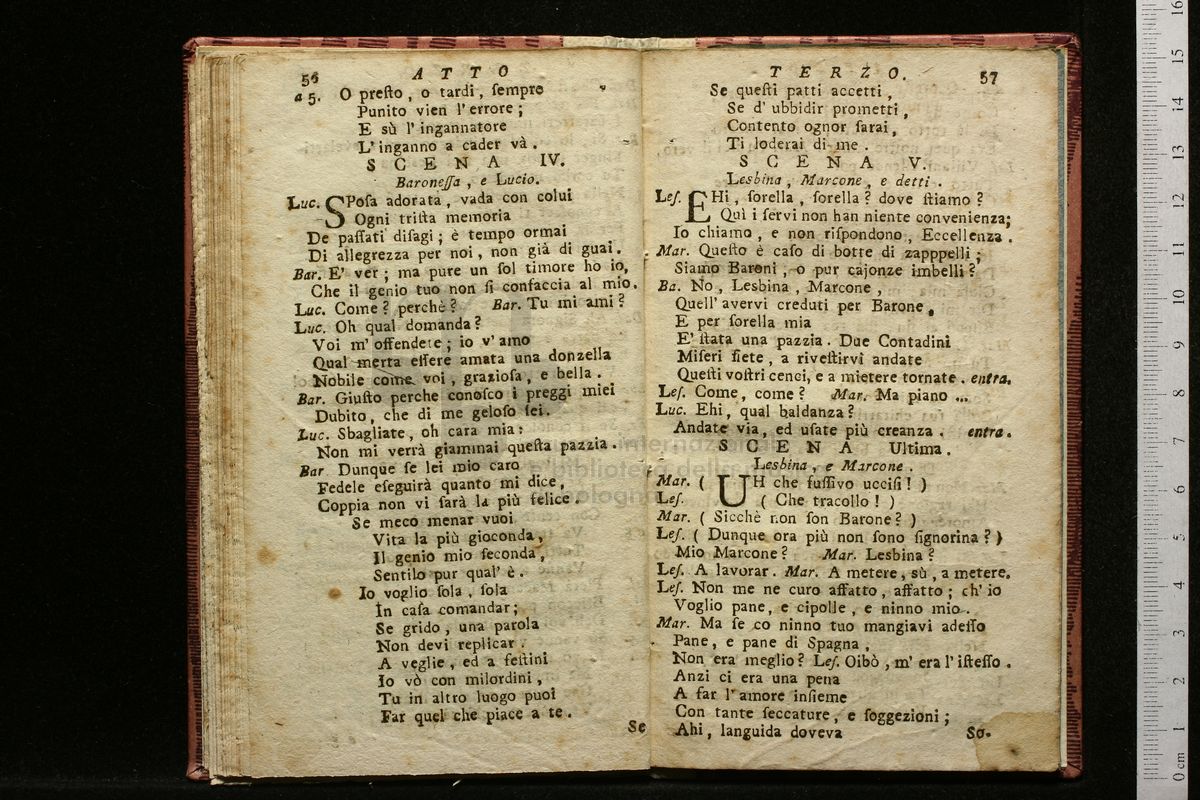 56 ATTO
a 5. O preſto, o tardi, ſempre
Punito vien l'errore;
E sù l'ingannatore
L'inganno a cader và.
SCENA IV.
Baroneſſa, e Lucio.
Luc. SPoſa adorata, vada con colui
Ogni triſta memoria
De paſſati diſagi; è tempo ormai
Di allegrezza per noi, non già di guai.
Bar. E' ver; ma pure un ſol timore ho io,
Che il genio tuo non ſi confaccia al mio.
Luc. Come? perchè? Bar. Tu mi ami?
Luc. Oh qual domanda?
Voi m'offendete; io v'amo
Qual merta eſſere amata una donzella
Nobile come voi, grazioſa, e bella.
Bar. Giuſto perche conoſco i preggi miei
Dubito, che di me geloſo ſei.
Luc. Sbagliate, oh cara mia:
Non mi verrà giammai queſta pazzia.
Bar Dunque ſe lei mio caro
Fedele eſeguirà quanto mi dice,
Coppia non vi ſarà la più felice.
Se meco menar vuoi
Vita la più gioconda,
Il genio mio ſeconda,
Sentilo pur qual' è.
Io voglio ſola, ſola
In caſa comandar;
Se grido, una parola
Non devi replicar.
A veglie, ed a feſtini
Io vò con milordini,
Tu in altro luogo puoi
Far quel che piace a te.
Se
TERZO. 57
Se queſti patti accetti,
Se d'ubbidir prometti,
Contento ognor ſarai,
Ti loderai di me.
SCENA V.
Lesbina, Marcone, e detti.
Leſ. EHi, ſorella, ſorella? dove ſtiamo?
Quì i ſervi non han niente convenienza;
Io chiamo, e non riſpondono, Eccellenza.
Mar. Queſto è caſo di botte di zapppelli;
Siamo Baroni, o pur cajonze imbelli?
Ba. No, Lesbina, Marcone,
Quell'avervi creduti per Barone,
E per ſorella mia
E' ſtata una pazzia. Due Contadini
Miſeri ſiete, a riveſtirvi andate
Queſti voſtri cenci, e a mietere tornate. entra.
Leſ. Come, come? Mar. Ma piano ...
Luc. Ehi, qual baldanza?
Andate via, ed uſate più creanza. entra.
SCENA Ultima.
Lesbina, e Marcone.
Mar. ( UH che fuſſivo ucciſi! )
Leſ. ( Che tracollo! )
Mar. ( Sicchè non ſon Barone? )
Leſ. ( Dunque ora più non ſono ſignorina? )
Mio Marcone? Mar. Lesbina?
Leſ. A lavorar. Mar. A metere, sù, a metere.
Leſ. Non me ne curo affatto, affatto; ch'io
Voglio pane, e cipolle, e ninno mio.
Mar. Ma ſe co ninno tuo mangiavi adeſſo
Pane, e pane di Spagna,
Non era meglio? Leſ. Oibò, m'era l'iſteſſo.
Anzi ci era una pena
A far l'amore inſieme
Con tante ſeccature, e ſoggezioni;
Ahi, languida doveva
So.
0 cm 1 2 3 4 5 6 7 8 9 10 11 12 13 14 15 16